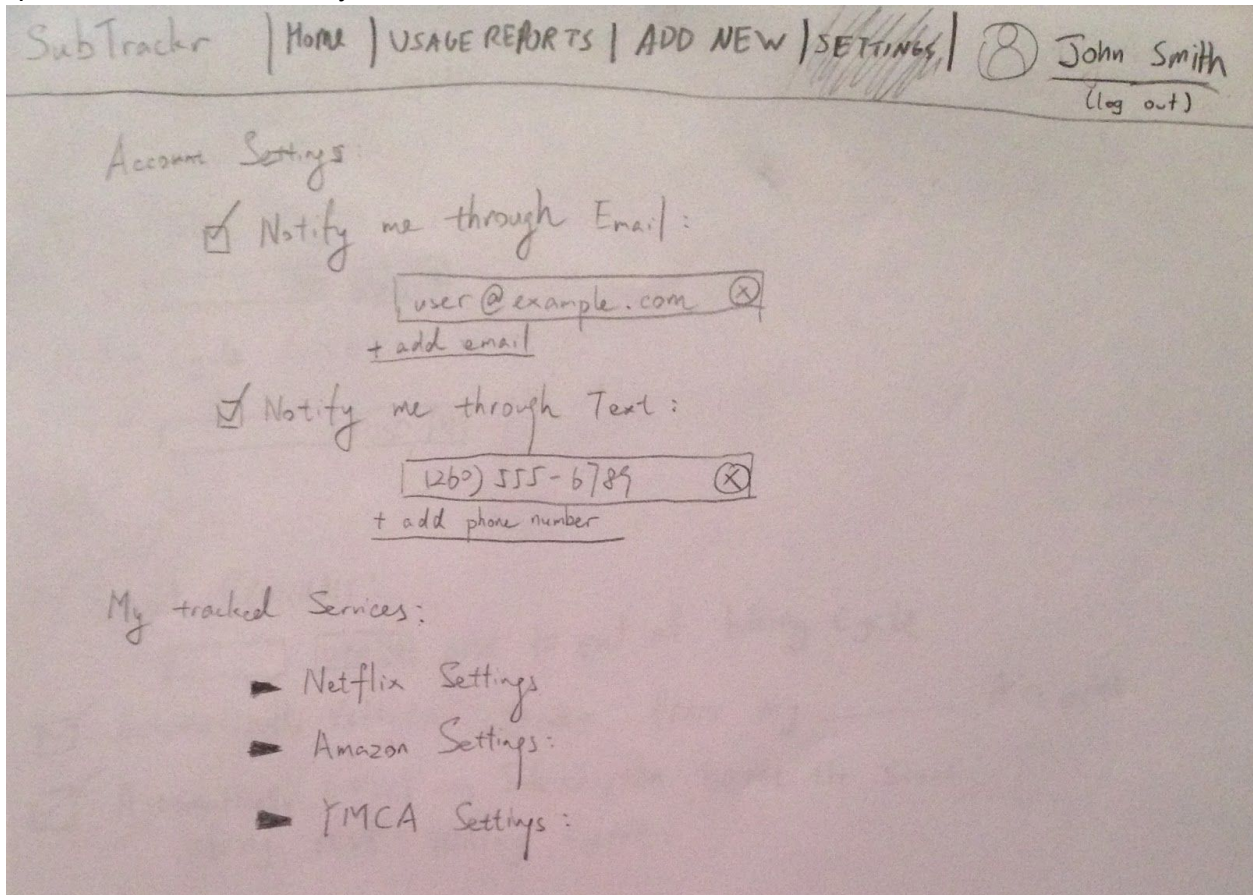 SubTrackr | Home | USAGE REPORTS | ADD NEW | SETTINGS | John Smith
(log out)
Account Settings:
Notify me through Email:
user@example.com
+ add email
Notify me through Text:
(260) 555-6789
+ add phone number
My tracked Services:
Netflix Settings
Amazon Settings:
YMCA Settings: